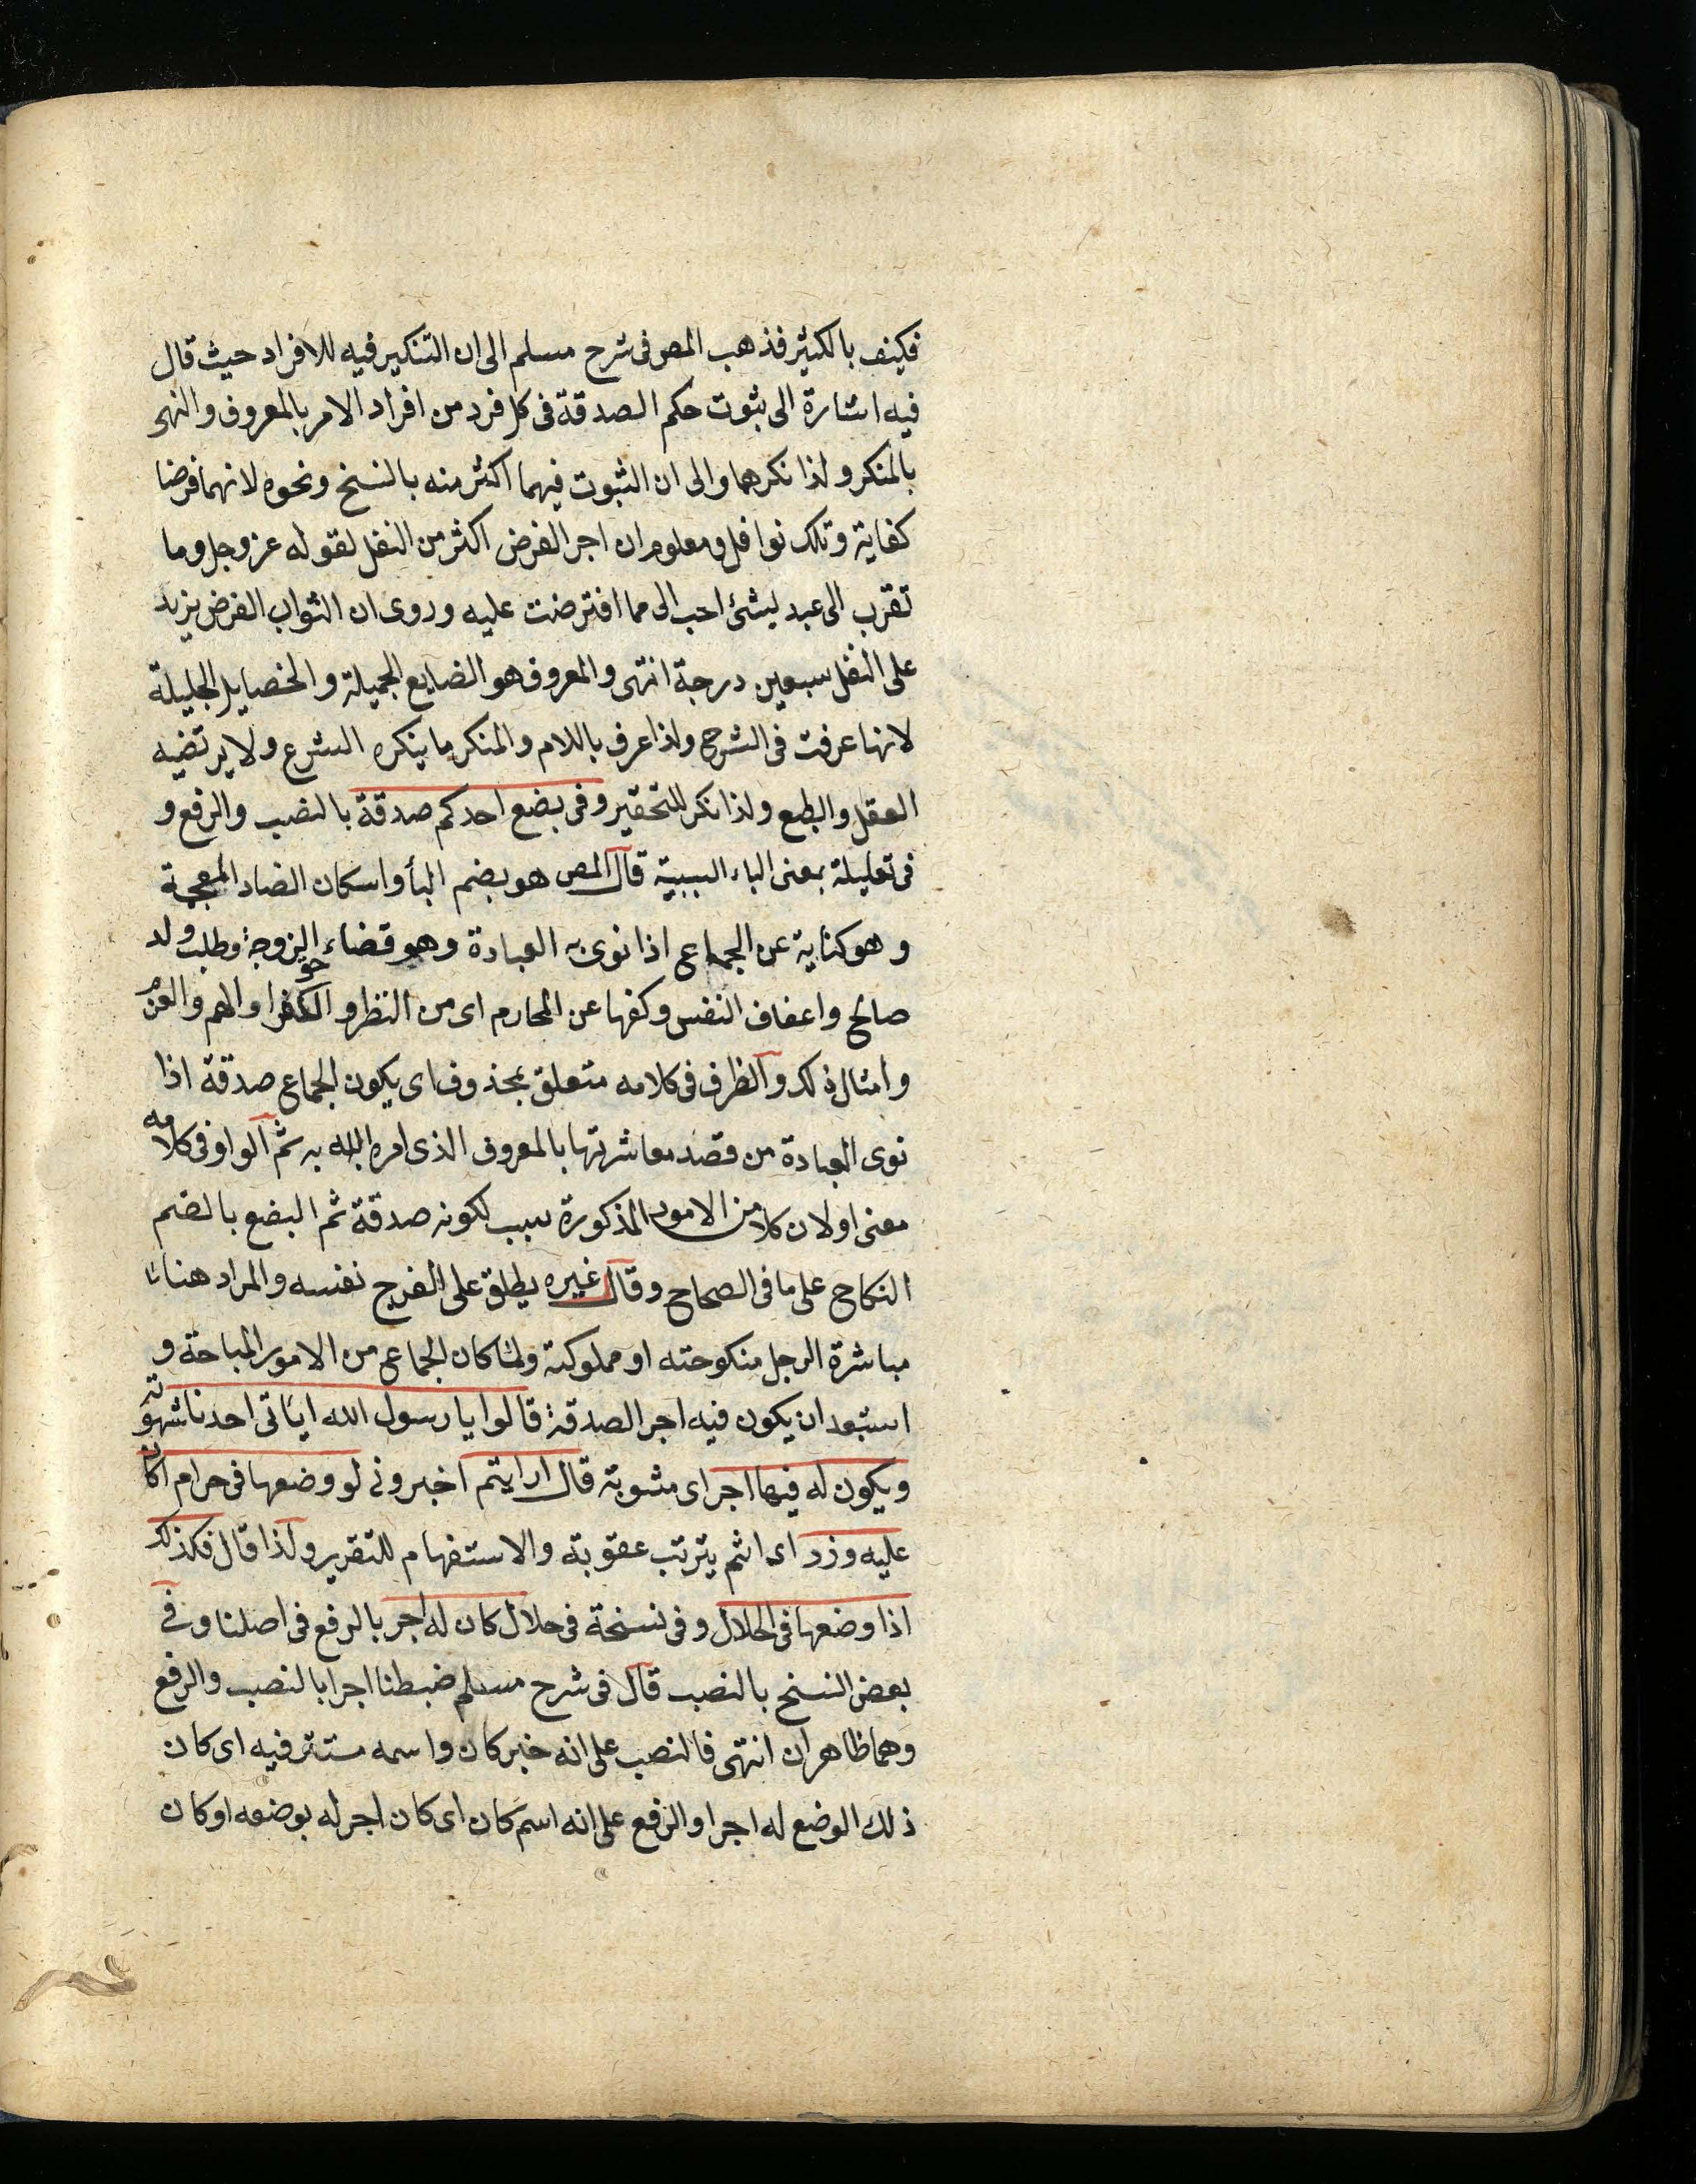 فكيف بالكثير فذهب المص فى شرح مسلم الى ان التنكير فيه للافراد حيث قال
فيه اشارة الى ثبوت حكم الصدقة فى كل فرد من افراد الامر بالمعروف والنهى
بالمنكر ولذا نكرهما والى ان الثبوت فيهما اكثر منه بالنسخ ونحوه لانهما فرضا
كفاية وتلك نوافل ومعلوم ان اجر الفرض اكثر من النفل لقوله عز وجل وما
تقرب الى عبد بشئ احب الى مما افترضت عليه وروى ان الثواب الفرض يزيد
على النفل سبعين درجة انتهى والمعروف هو الضايع الجميلة والخصايل الجليلة
لانها عرفت فى الشرح ولذا عرف باللام والمنكر ما ينكره الشرع ولا يرتضيه
العقل والبطع ولذا نكر للتحقير وفى بضع احدكم صدقة بالنصب والرفع و
فى تعليلة بمعنى الباء السببية قال المص هو بضم البأ واسكان الضاد المعجمة
وهو كناية عن الجماع اذا نوى به العبادة وهو قضاء حق الزوجة وطلب ولد
صالح واعفاف النفس وكفها عن المحارم اى من النظر و الفكر او الهم والعزم
وامثال ذلك والظرف فى كلامه متعلق بمحذوف اى يكون الجماع صدقة اذا
نوى العبادة من قصد معاشرتها بالمعروف الذى امره الله به ثم الواو فى كلامه
معنى او لان كلا من الامور المذكورة سبب لكونه صدقة ثم البضع بالضم
النكاح على ما فى الصحاح وقال غيره يطلق على الفرج نفسه والمراد هنا
مباشرة الرجل منكوحته او مملوكته ولما كان الجماع من الامور المباحة و
استبعد ان يكون فيه اجر الصدقة قالوا يا رسول الله اياتى احدنا شهوته
ويكون له فيها اجر اى مثوبة قال ارايتم اخبرونى لو وضعها فى حرام اكان
عليه وزر اى اثم يترتب عقوبة والاستفهام للتقرير ولذا قال فكذلك
اذا وضعها فى الحلال وفى نسخة فى حلال كان له اجر بالرفع فى اصلنا وفى
بعض النسخ بالنصب قال فى شرح مسلم ضبطنا اجرا بالنصب والرفع
وهما ظاهران انتهى فالنصب على انه خبر كان واسمه مستتر فيه اى كان
ذلك الوضع له اجرا والرفع على انه اسم كان اى كان اجر له بوضعه او كان